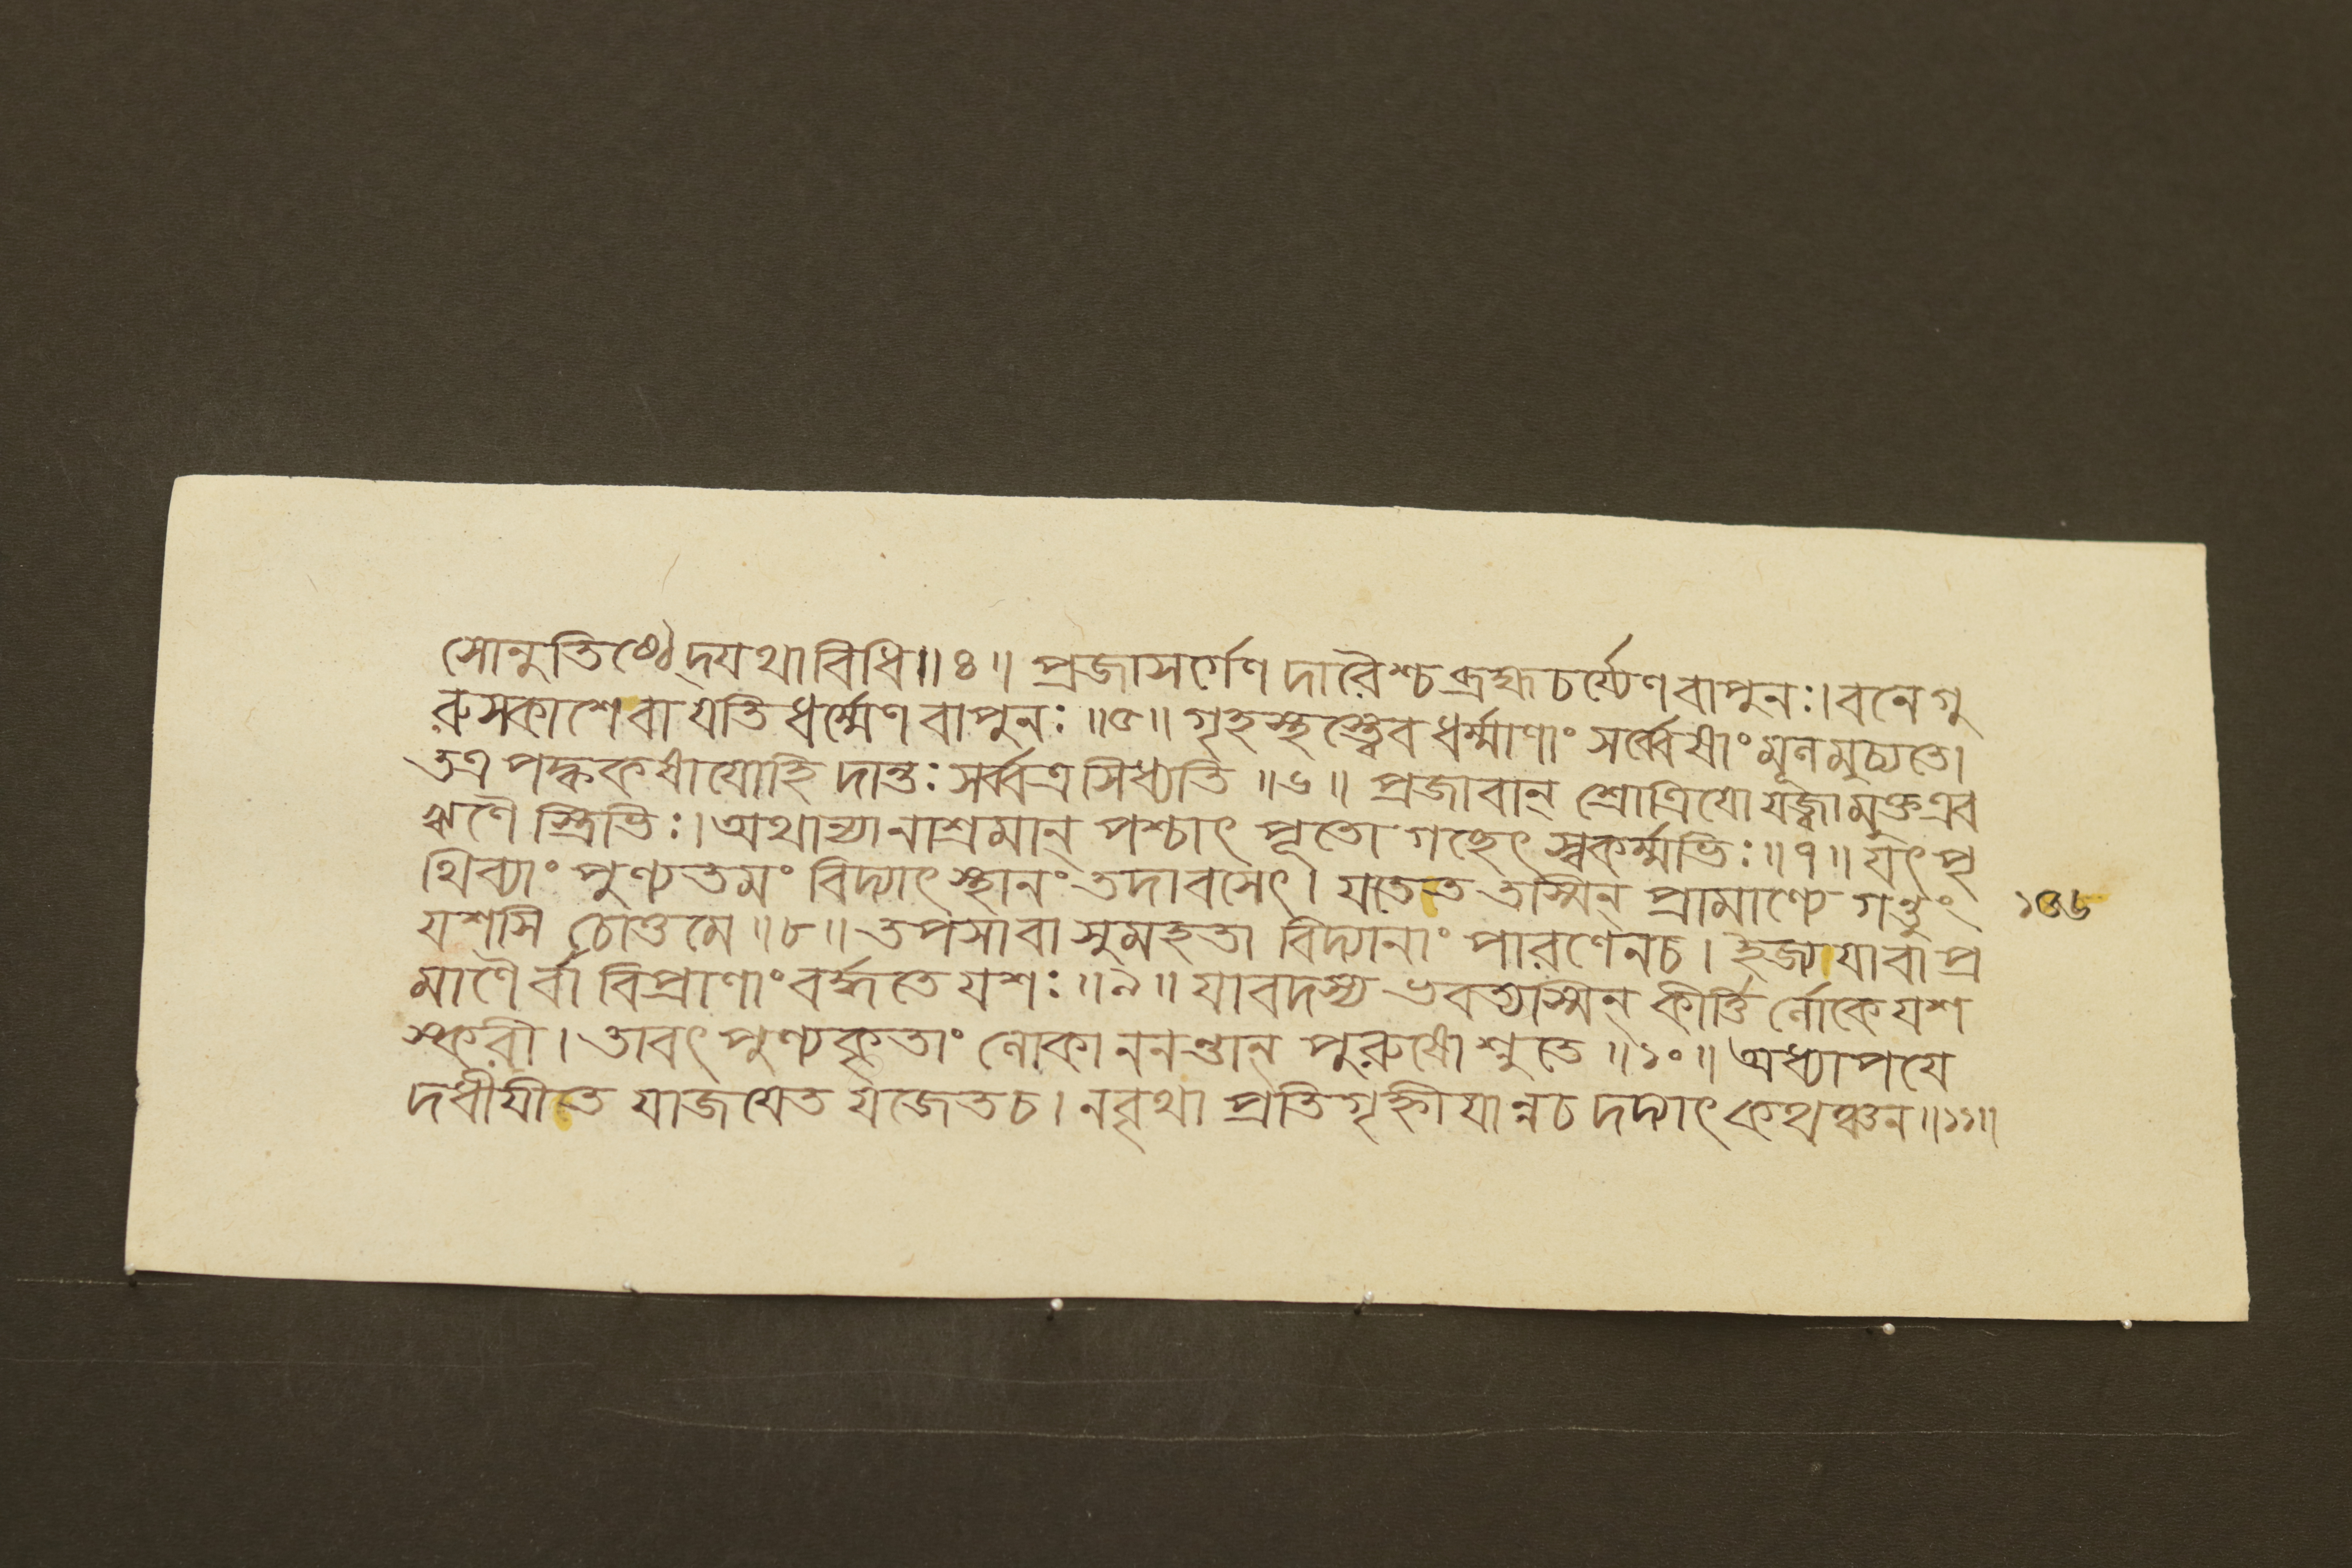 সোনুতিষ্ঠেদ্যথাবিধি॥৪॥ প্রজাসর্গেণ দারৈশ্চ ব্রহ্মচর্য্যেণ বাপুনঃ।বনেগু
রুসকাশেবা যতিধর্ম্মেণ বাপুনঃ ॥৫॥ গৃহস্থস্ত্বেব ধর্ম্মাণাং সর্ব্বেষাং মূলমুচ্যতে।
তত্র পক্বকষাযোহি দান্তঃ সর্ব্বত্র সিধ্যতি ॥৬॥ প্রজাবান্ শ্রোত্রিযো যজ্বামুক্তএব
ঋণৈ স্ত্রিভিঃ।অথান্যানাশ্রমান্ পশ্চাৎ পূতো গচ্ছেৎ স্বকর্ম্মভিঃ॥৭॥যৎ পৃ
থিব্যাং পুণ্যতমং বিদ্যাৎ স্থানং তদাবসেৎ। যতেত তস্মিন্ প্রামাণ্যে গন্তুং
১৩৬
যশসি চোত্তমে ॥৮॥ তপসাবা সুমহতা বিদ্যানাং পারণেনচ। ইজ্যযাবা প্র
মাণৈ র্বা বিপ্রাণাং বর্দ্ধতে যশঃ ॥৯॥ যাবদস্য ভবত্যস্মিন্ কীর্ত্তি র্লোকে যশ
স্করী। তাবৎ পুণ্যকৃতাং লোকাননন্তান্ পুরুষোশ্নুতে ॥১০॥ অধ্যাপযে
দধীযীত যাজযেত যজেতচ। নবৃথা প্রতিগৃহ্নীযান্নচ দদ্যাৎ কথঞ্চন॥১১॥